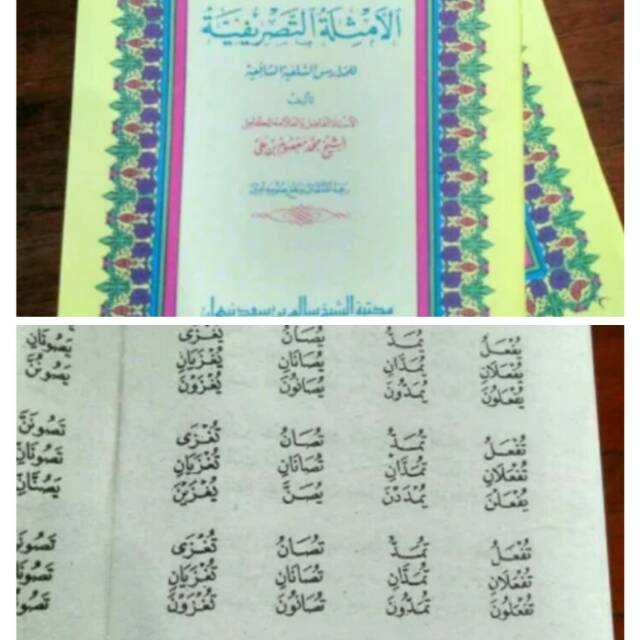 الأمثلة التصريفية
للمدارس السلفية الشافعية
تأليف
الأستاذ الفاضل والعلامة الكامل
الشيخ محمد معصوم بن علي
مكتبة الشيخ سالم بن سعد نبهان
يُفْعَلُ يُمَدُّ يُصَانُ يُغْزَى يَصُونَانِ
يُفْعَلَانِ يُمَدَّانِ يُصَانَانِ يُغْزَيَانِ يَصُونُنَّ
يُفْعَلُونَ يُمَدُّونَ يُصَانُونَ يُغْزَوْنَ
تُفْعَلُ تُمَدُّ تُصَانُ تُغْزَى تَصُونَنَّ
تُفْعَلَانِ تُمَدَّانِ تُصَانَانِ تُغْزَيَانِ تَصُونَانِّ
يُفْعَلْنَ يُمْدَدْنَ يُصَنَّ يُغْزَيْنَ يَصُنَّانِ
تُفْعَلُ تُمَدُّ تُصَانُ تُغْزَى
تُفْعَلَانِ تُمَدَّانِ تُصَانَانِ تُغْزَيَانِ
تُفْعَلُونَ تُمَدُّونَ تُصَانُونَ تُغْزَوْنَ